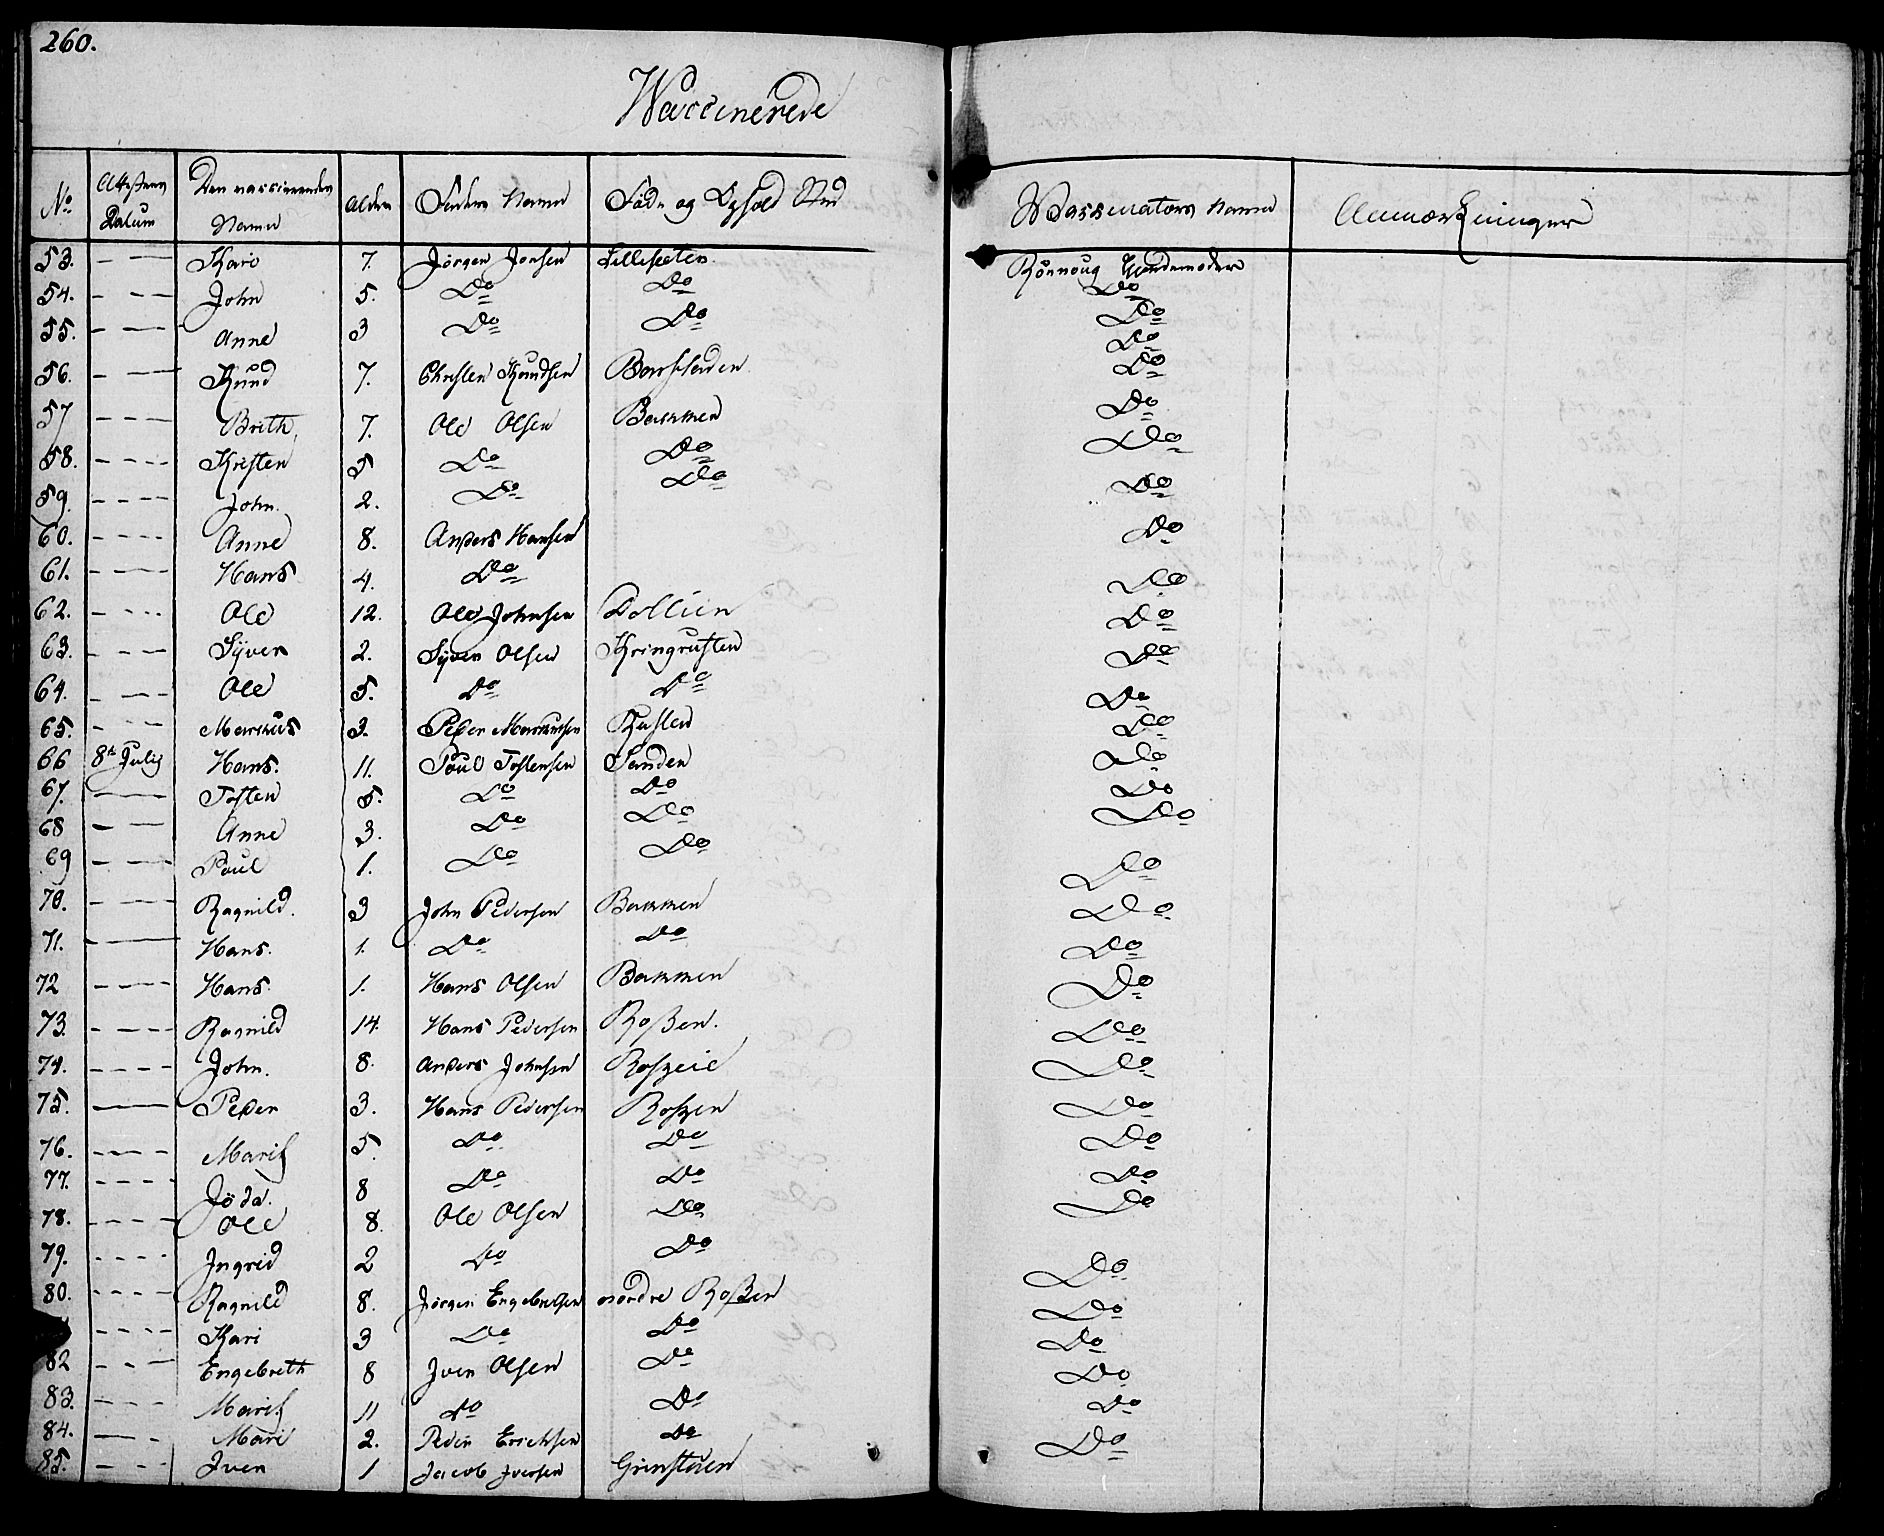 260.
Waccinerede
No Attestens Datum Den vaccinerendes Navn Alder Faders Navn Føde og Ophold Sted Waccinators Navn Anmærkninger
53. - - Kari 7. Jörgen Jonsen Lillesæten. Rönnoug Giordemoder
54. - - - John 5. Do Do Do
55. - - Anne 3 Do Do Do
56. - - Knud 7. Christen Knudsen Do
57 - - - Brith 7. Ole Olsen Bakken Do
58. - - - - Kristen 5 Do Do Do
59. - - - - John. 2. Do Do Do
60. - - - - Anne 8. Anders Hansen Do
61. - - - Hans 4. Do Do
62. - - - - Ole 12. Ole Johnsen Dollien Do
63. - - - Syver 2. Syver Olsen Kringrusten Do
64. - - - Ole 5. Do Do Do
65. - - - Marckus 3. Peder Marckusen Rusten Do
66 8de Julij Hans. 11. Poul Tostensen Sanden Do
67. - - Tosten 5. Do Do Do
68 - - Anne 3. Do Do Do
69 - - - Poul 1. Do Do Do
70. - - - Ragnild. 3 John Pedersen Bakken Do
71. - Hans. 1. Do Do Do
72 - - - - Hans. 1. Hans Olsen Bakken Do
73. - - - - Ragnild 14. Hans Pedersen Roßen. Do
74. - - - - John. 8. Anders Johnsen Do
75. - - Peder 3. Hans Pedersen Do
76. - - - - Marit 5. Do Do Do
77. - - - - Jöda. 8 Do Do Do
78. - - - - Ole 8. Ole Olsen Do Do
79. - - - - Ingrid 2 Do Do Do
80. - - - - Ragnild 8. Jörgen Engebretsen nordre Roßen Do
- - - - Kari 3 Do Do Do
82 - - - Engebreth 8 Iver Olsen Do Do
83. - - - - Marit 11 Do Do Do
84. - - - Mari 2. Peder Erichsen Do Do
85. - - - Iver 1 Jacob Iversen Grinstuen